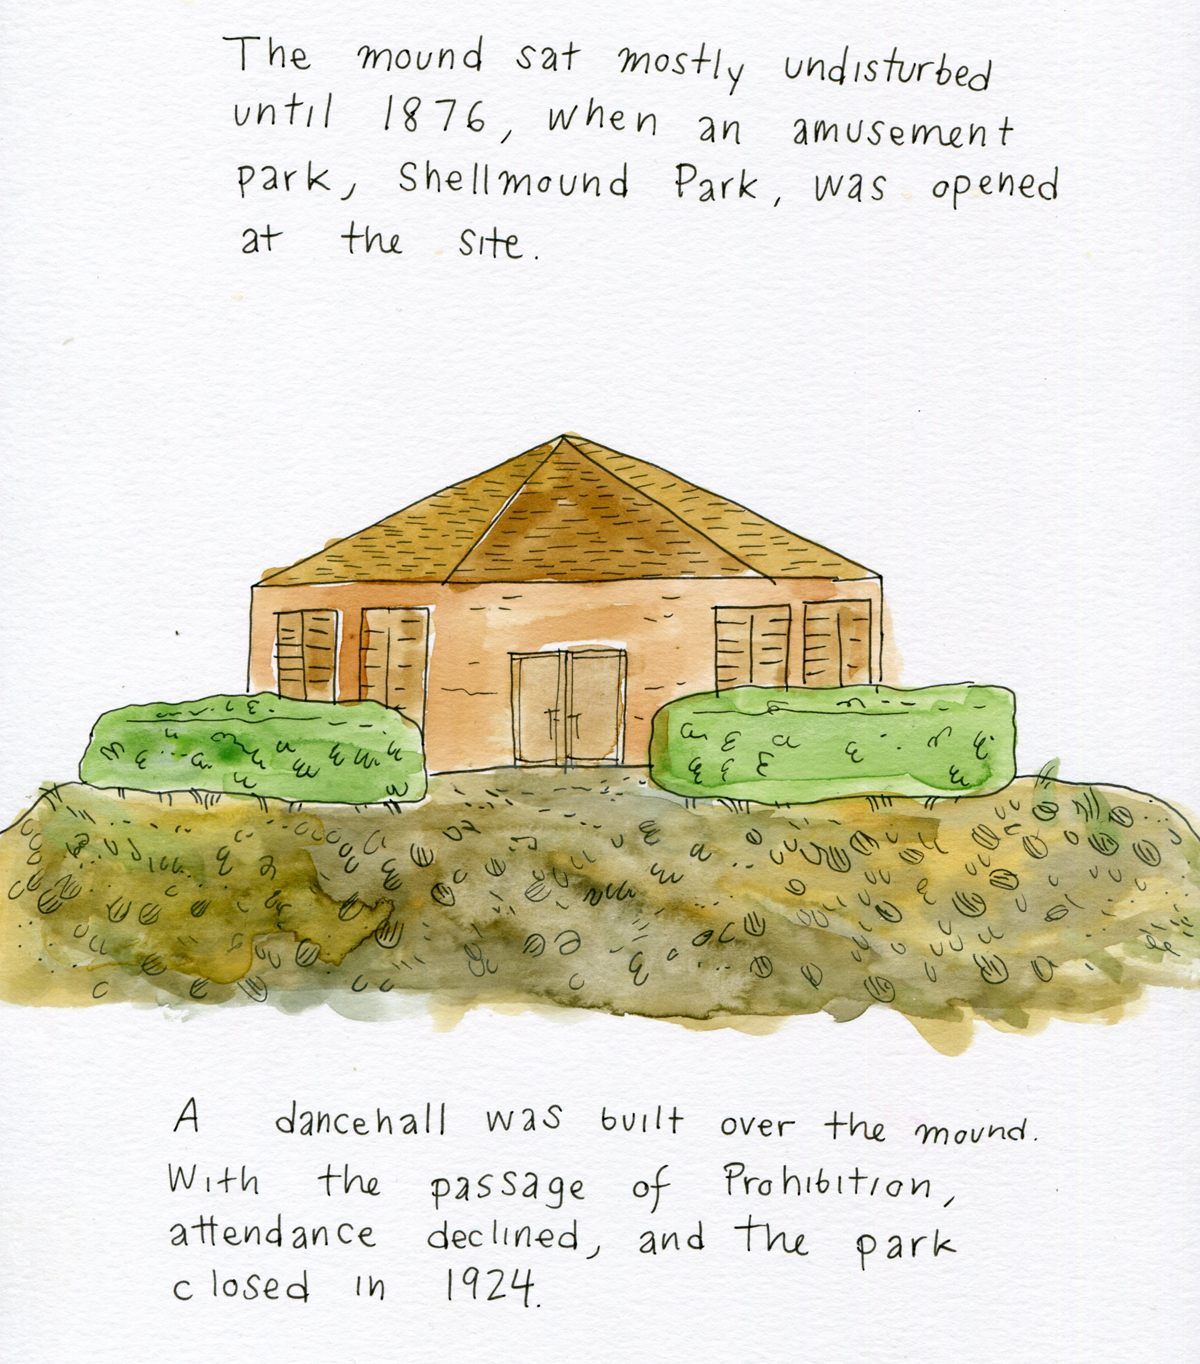 The mound sat mostly undisturbed
until 1876, when an amusement
park, Shellmound Park, was opened
at the site.
A dancehall was built over the mound.
With the passage of Prohibition,
attendance declined, and the park
closed in 1924.